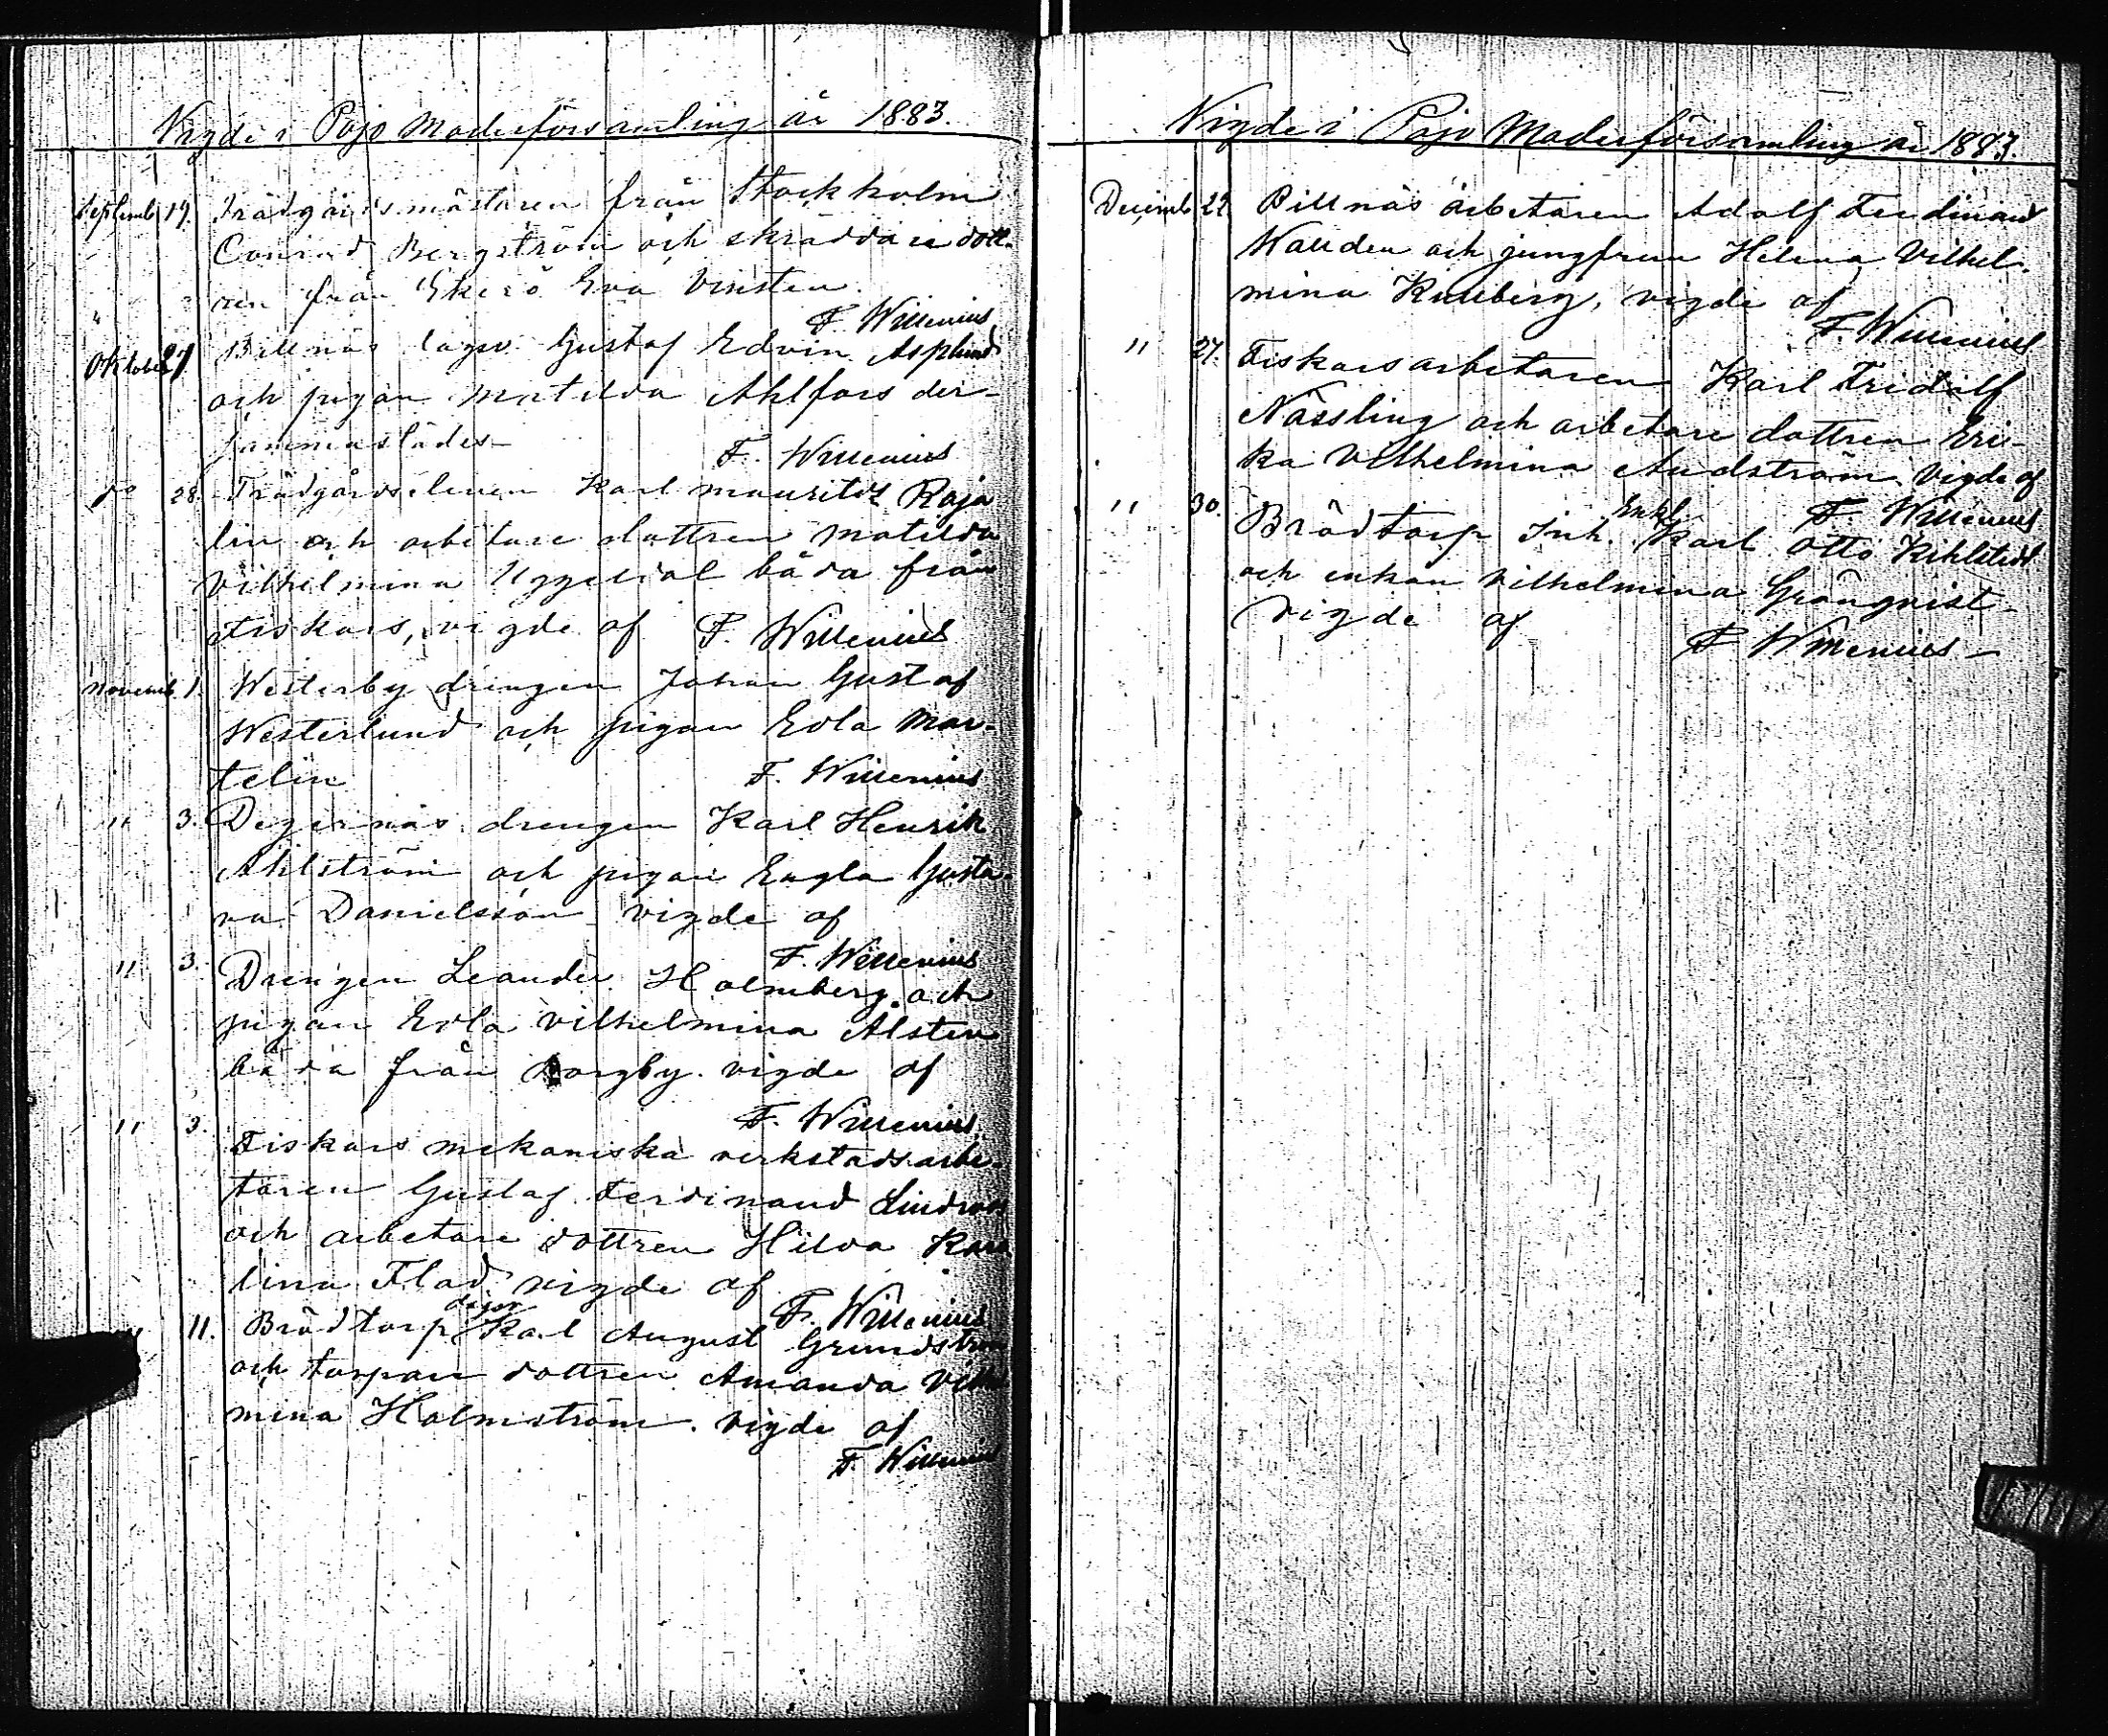 Vigde i Pojo Moderförsamling år 1883.
Septemb. 19. Trädgårdsmästaren från Stockholm
Conrad Bergström och skräddare dott-
ren från Ekerö Eva Vinsten.
F. Willenius
Oktober 27 Billnäs lagso. Gustaf Edvin Asplund
och pigan Matilda Ahlfors der-
sammastädes
F. Willenius
do 28. Trädgårdseleven Karl Mauritz Roja
lin och arbetare dottren Matilda
Vilhelmina Uggeldal båda från
Fiskars, vigde af F. Willenius
Novemb. 1. Westerby drengen Johan Gustaf
Westerlund och pigan Edla Mar-
telin F. Willenius
" 3. Degernäs drengen Karl Henrik
Ahlström och pigan Engla Gusta-
va Danielsson vigde af
F. Willenius
" 3. Drengen Leander Holmberg och
pigan Edla Vilhelmina Alsten
båda från Dorgby. vigde af
F. Willenius
" 3. Fiskars mekaniska verkstadsarbe-
taren Gustaf Ferdinand Lindroos
och arbetare dottren Hilda Karo
lina Flad vigde af
F. Willenius
11. Brödtorp Karl August Grundström
och torpare dottren Amanda Vilhel
mina Holmström. vigde af
F. Willenius
Vigde i Pojo Moderförsamling år 1883.
Decemb. Billnäs arbetaren Adolf Ferdinand
Wallden och jungfrun Helena Vilhel-
mina Kullberg, vigde af
F. Willenius
" 27. Fiskars arbetaren Karl Fridolf
Nässling och arbetare dottren Eri-
ka Vilhelmina Andström vigde af
F. Willenius
" 30. Brödtorp Inh. Enkl. Karl Otto Kihlstedt
och enkan Vilhelmina Grönqvist
vigde af
F. Willenius